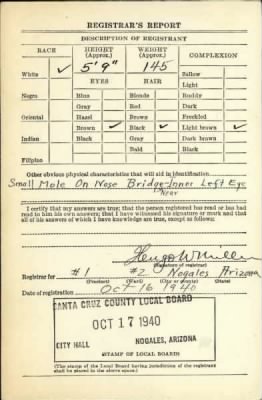 REGISTRAR'S REPORT
DESCRIPTION OF REGISTRANT
RACE HEIGHT (Approx.) WEIGHT (Approx.) COMPLEXION
5' 9" 145
White ✓ Sallow
EYES HAIR Light
Negro Blue Blonde Ruddy
Gray Red Dark
Oriental Hazel Brown Freckled
Brown ✓ Black ✓ Light brown ✓
Indian Black Gray Dark brown
Bald Black
Filipino
Other obvious physical characteristics that will aid in identification
Small Mole On Nose Bridge-Inner Left Eye
near
I certify that my answers are true; that the person registered has read or has had
read to him his own answers; that I have witnessed his signature or mark and that
all of his answers of which I have knowledge are true, except as follows:
(Signature of registrar)
Registrar for #1 #2 Nogales Arizona
(Precinct) (Ward) (City or county) (State)
Date of registration Oct 16 1940
SANTA CRUZ COUNTY LOCAL BOARD
OCT 17 1940
CITY HALL NOGALES, ARIZONA
(STAMP OF LOCAL BOARD)
(The stamp of the Local Board having jurisdiction of the registrant
shall be placed in the above space.)